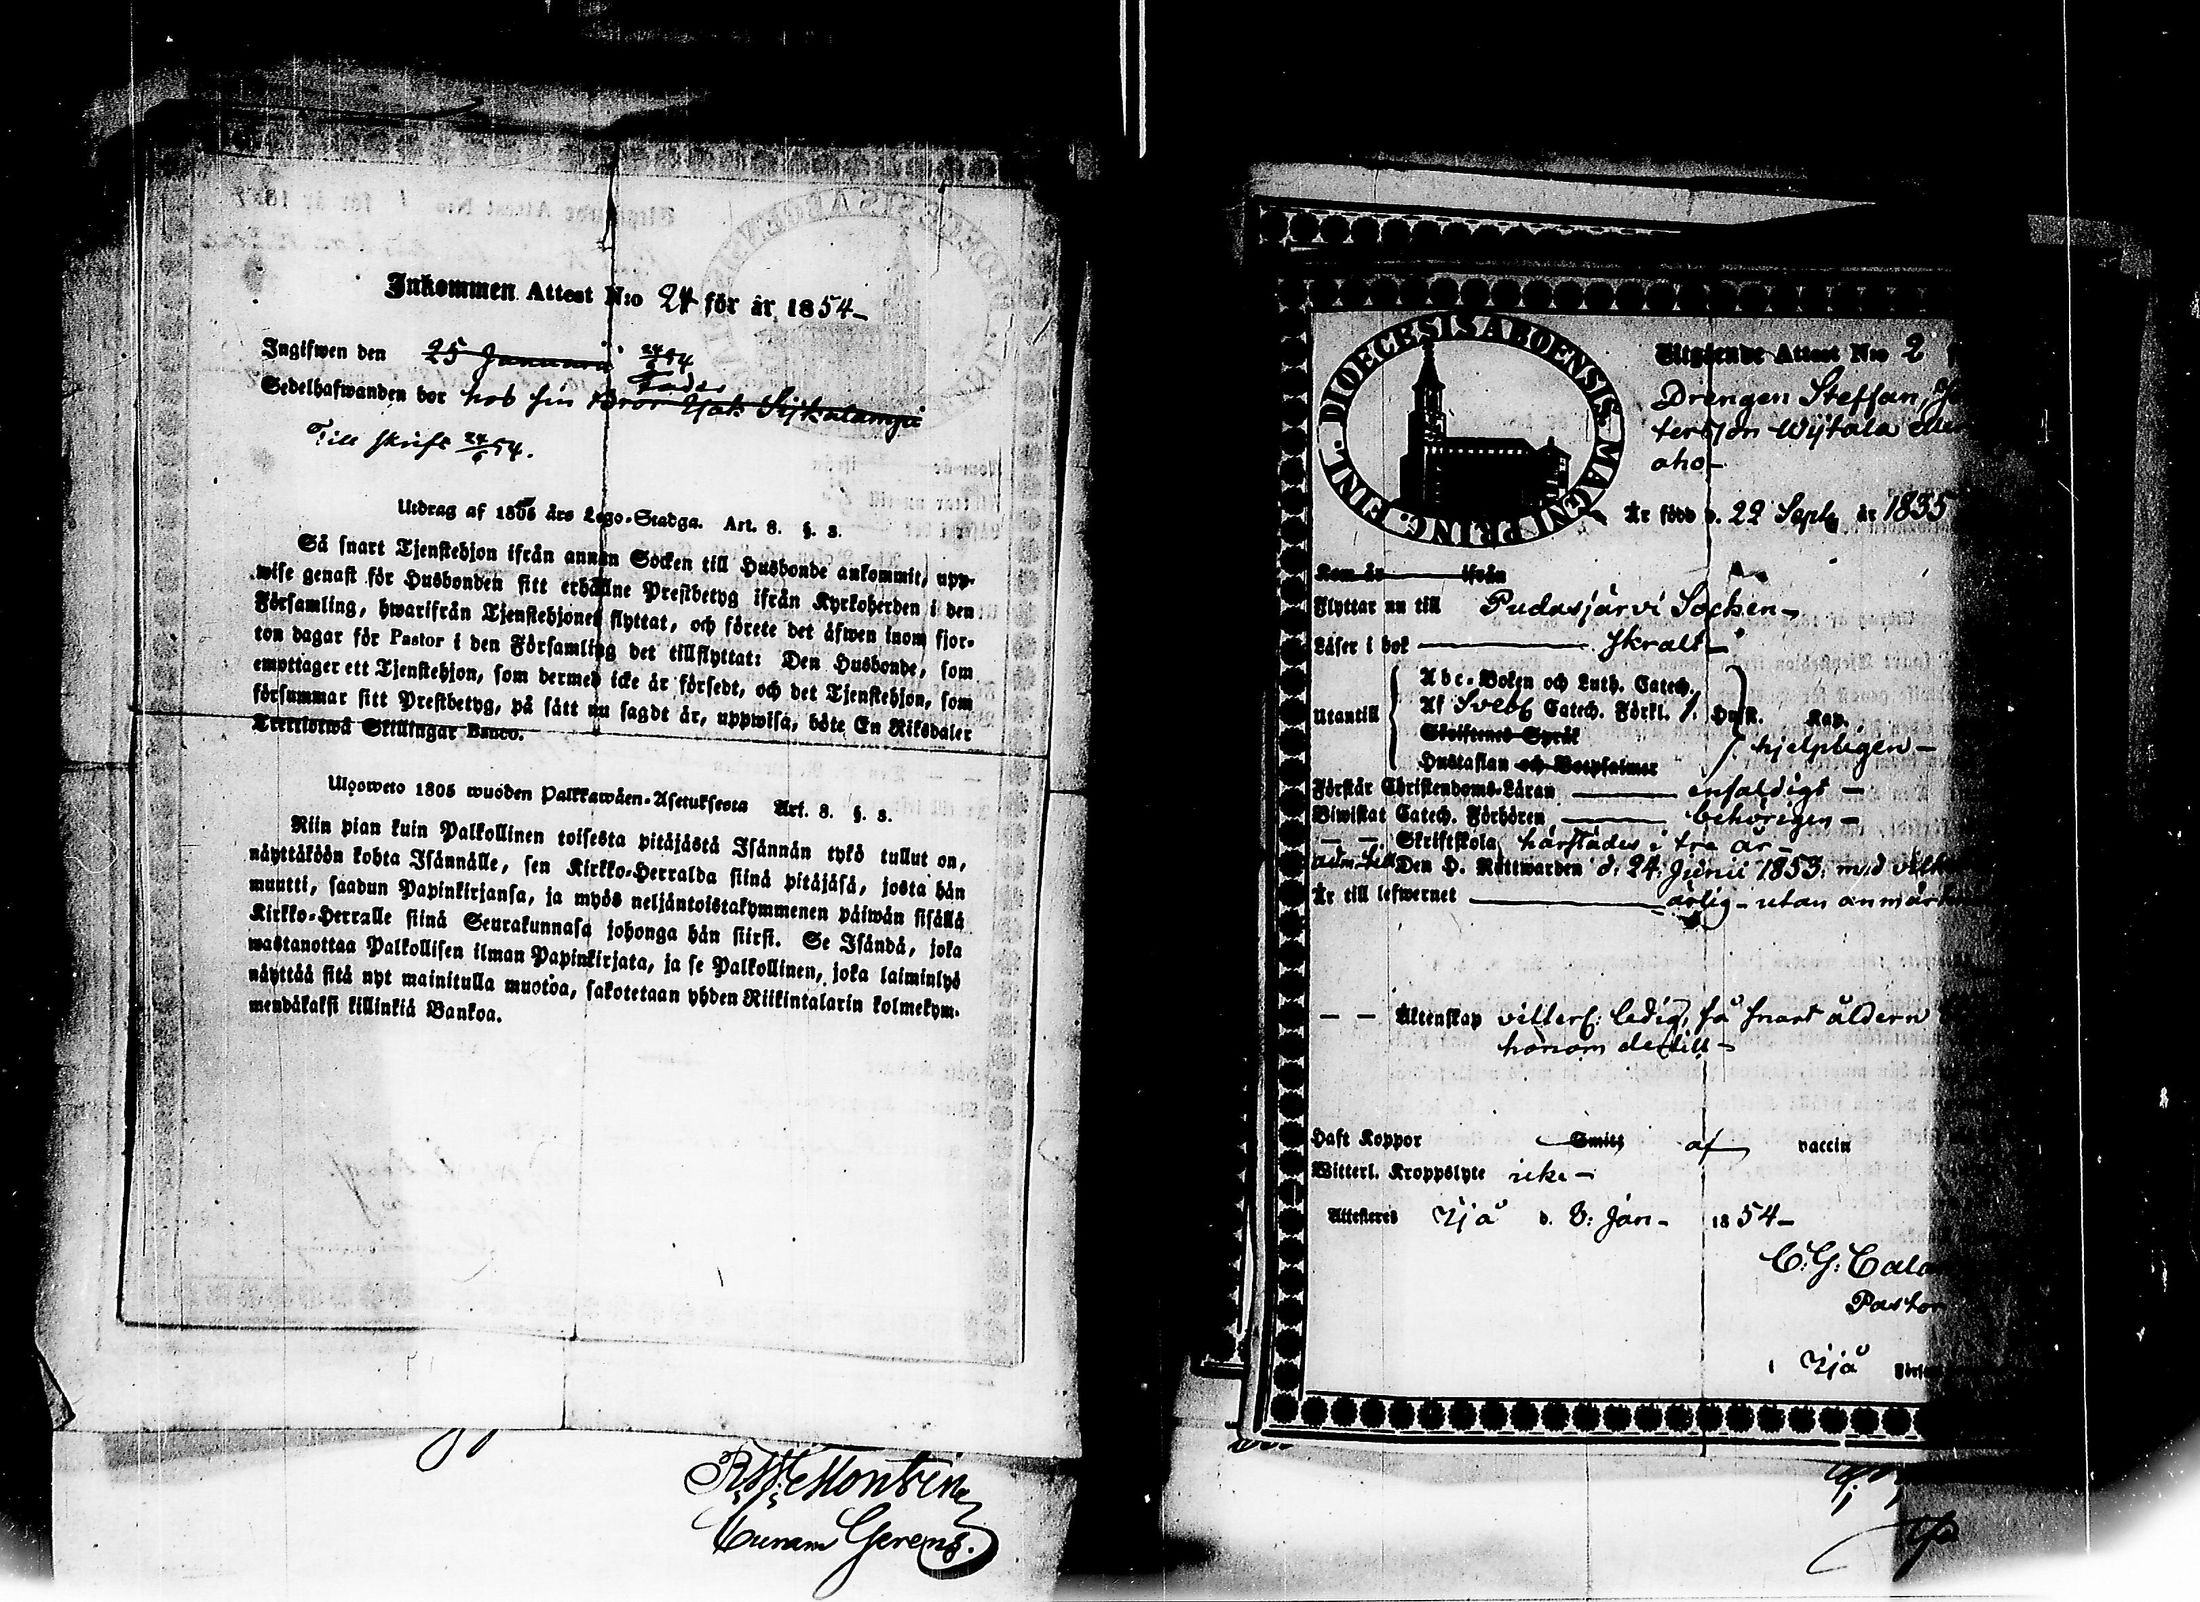 Inkommen Attest N:o 24 för år 1854
Ingifwen den 25 Januarii 24/6 54
Fader
Sedelhafwanden bor hos sin Bror
Till skrift 24/6 54.
Utdrag af 1805 års Lego-Stadga. Art. 8. §. 3.
Så snart Tjenstehjon ifrån annan Socken till Husbonde ankommit, upp-
wise genast för Husbonden sitt erhållne Prestbetyg ifrån Kyrkoherden i den
Församling, hwarifrån Tjenstehjonet flyttat, och förete det äfwen inom fjor-
ton dagar för Pastor i den Församling det tillflyttat: Den Husbonde, som
emottager ett Tjenstehjon, som dermed icke är försedt, och det Tjenstehjon, som
försummar sitt Prestbetyg, på sätt nu sagdt är, uppwisa, böte En Riksdaler
Trettiotwå Skillingar Banco.
Ulosweto 1805 wuoden Palkkawäen-Asetuksesta Art. 8. §. 3.
Niin pian kuin Palkollinen toisesta pitäjästä Isännän tykö tullut on,
näyttäköön kohta Isännälle, sen Kirkko-Herralda siinä pitäjäsä, josta hän
muutti, saadun Papinkirjansa, ja myös neljäntoistakymmenen päiwän sisällä
Kirkko-Herralle siinä Seurakunnasa johonga hän siirsi. Se Isändä, joka
wastanottaa Palkollisen ilman Papinkirjata, ja se Palkollinen, joka laiminlyö
näyttää sitä nyt mainitulla muotoa, sakotetaan yhden Riikintalarin kolmekym-
mendäkaksi killinkiä Bankoa.
DIOECESIS ABOENSIS. MAGNI PRING. FINL.
Utgående Attest N:o 2
Drengen Steffan,
aho
Är född d. 22 Sept. år 1835
Kom år ifrån
Flyttar nu till Pudasjärvi Socken
Läser i bok skralt
Utantill
Abc-Boken och Luth. Catech.
Af Sveb. Catech. Förkl. Hust. Kap.
Skriftenes Språk
Hustaflan och Botpsalmer hjelpligen
Förstår Christendoms-Läran enfaldigt
Biwistat Catech. Förhören behörigen
Skriftskola härstädes i tre år
adm. till Den H. Nattwarden d. 24: Junii 1853:
Är till lefwernet ärlig utan
Äktenskap ledig, så snart åldern
honom dertill
Haft Koppor Smitt af vaccin
Witterl. Kroppslyte icke
Attesteres Ijå d. 8: Jan. 1854
C. G.
Pastor
i Ijå